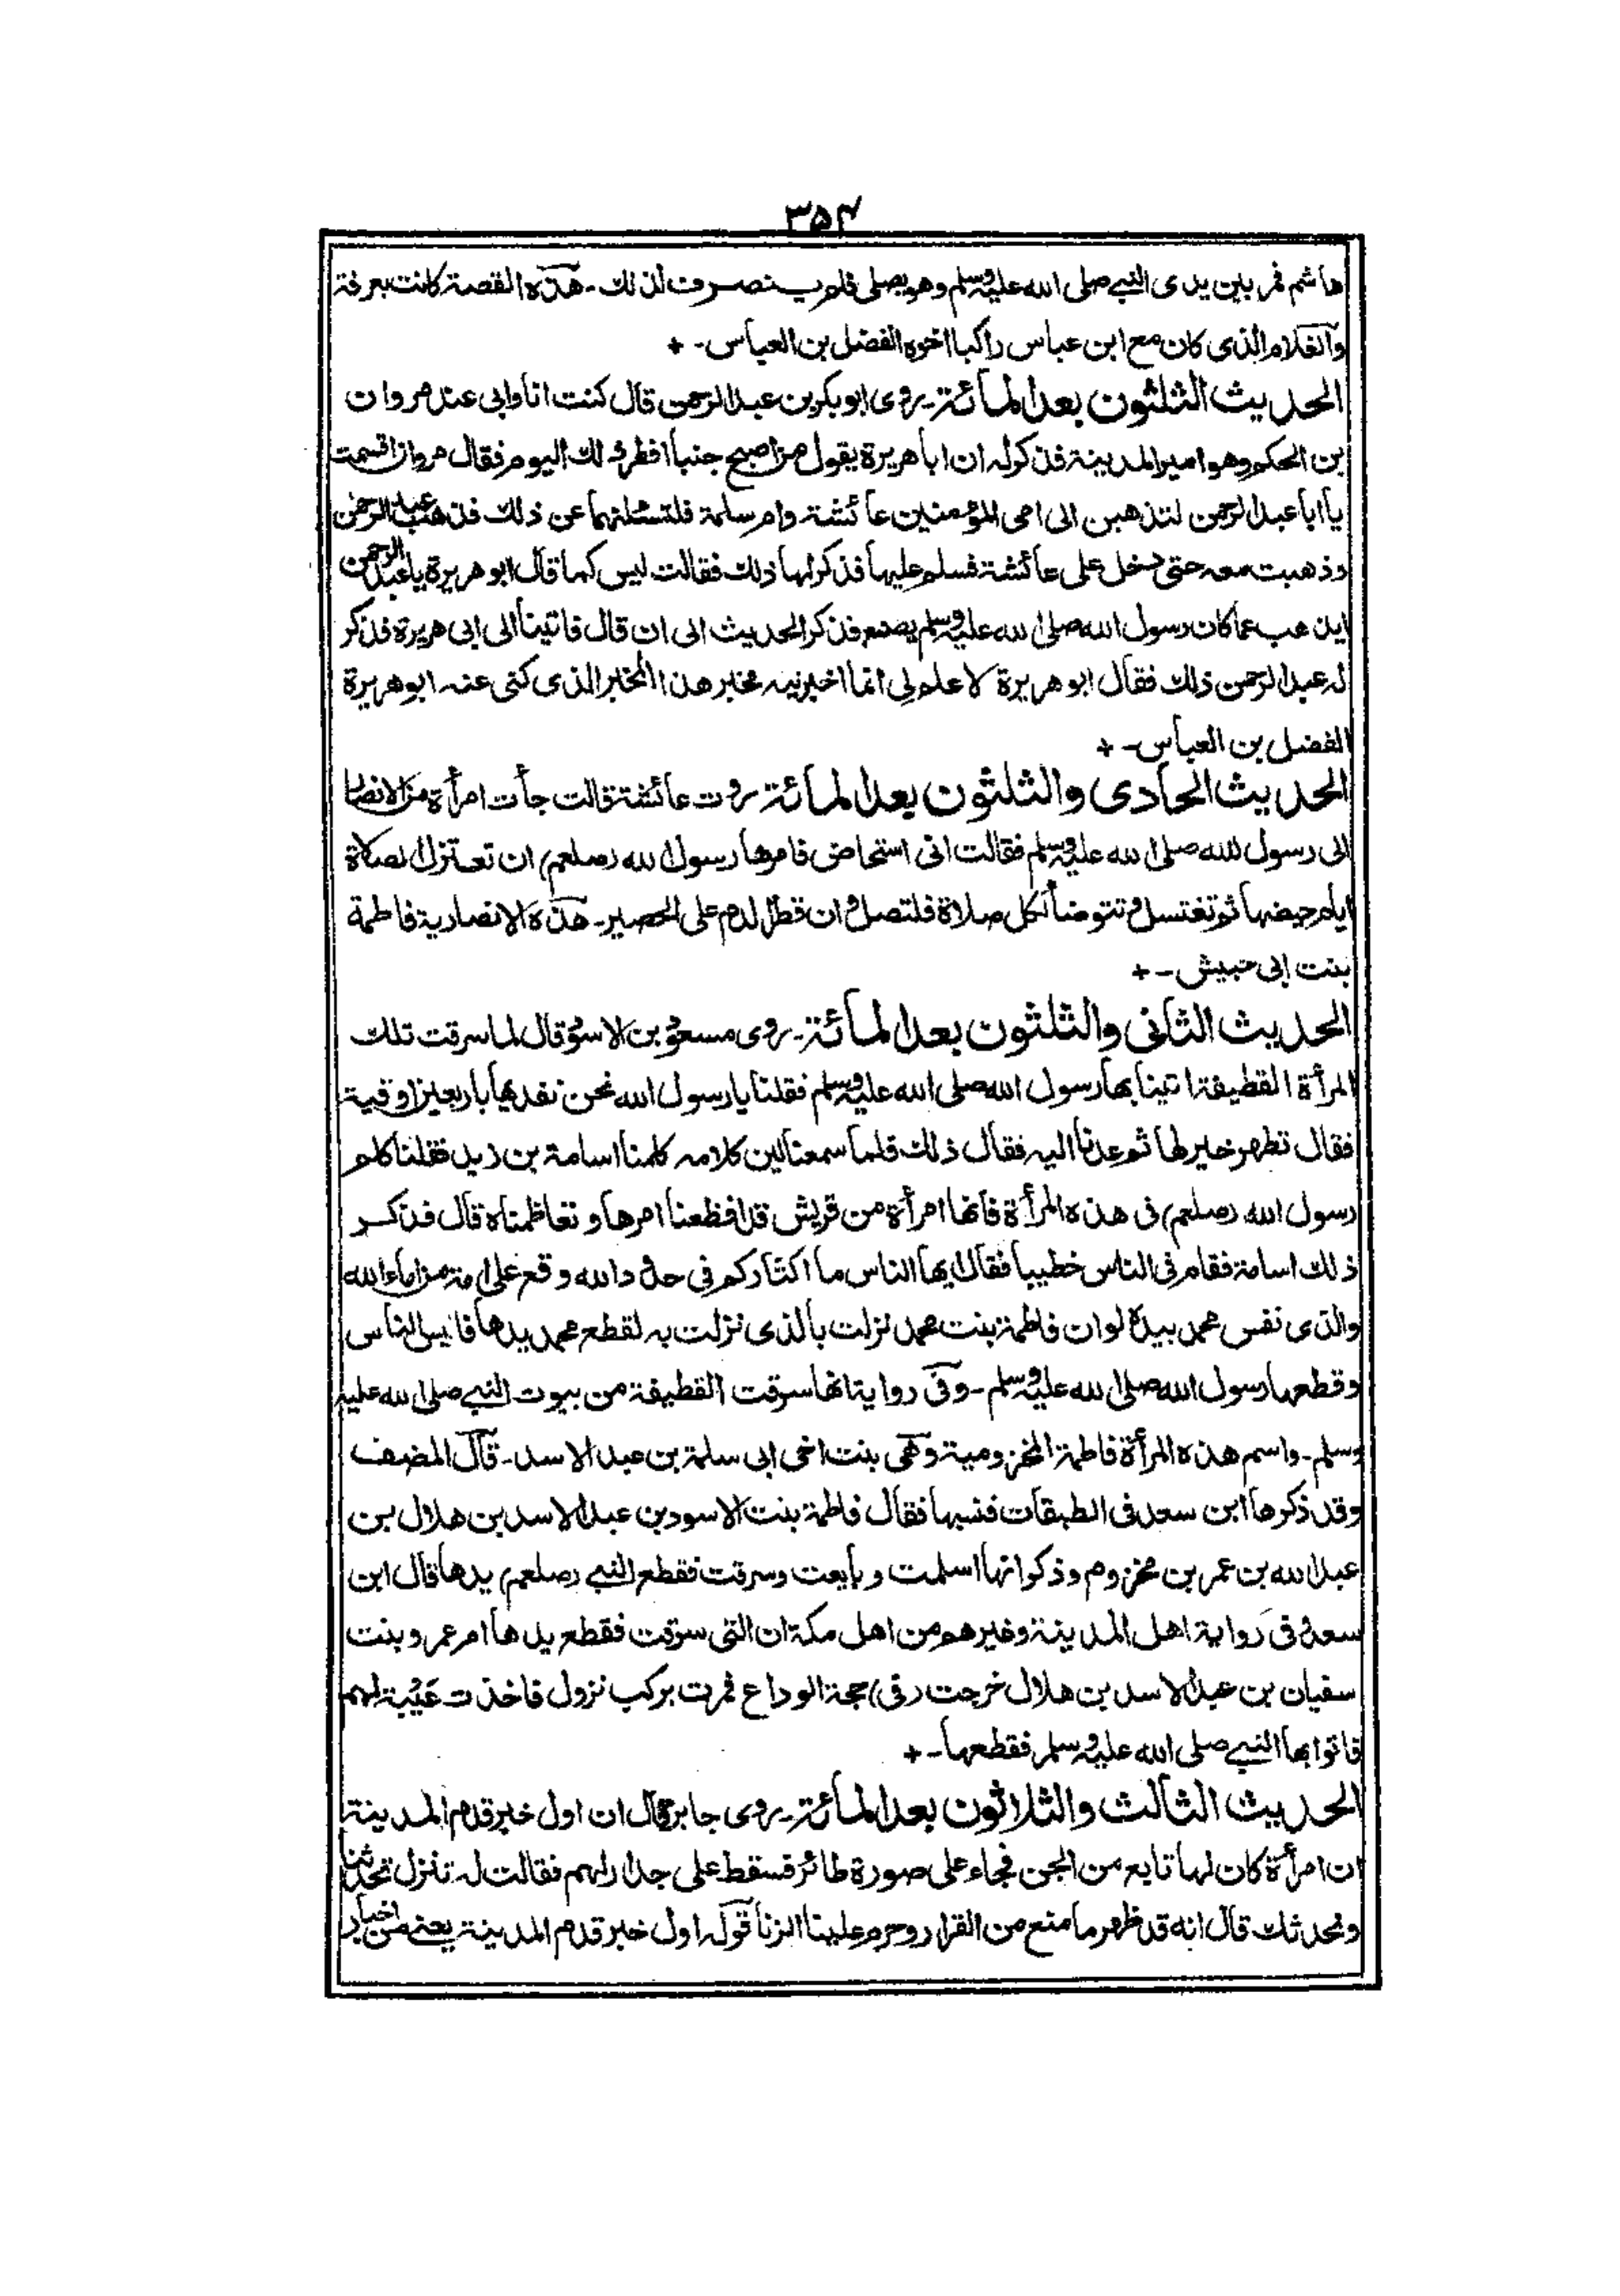 ۳۵۴
هاشم فمر بين يدى النبي صلى الله عليه وسلم وهو يصلى فلم ينصرف لذلك - هذه القصة كانت بعرفة
والغلام الذى كان مع ابن عباس راكبا اخوه الفضل بن العباس - +
الحديث الثلثون بعد المائة - روى ابو بكر بن عبد الرحمن قال كنت انا وابى عند مروان
بن الحكم وهو امير المدينة فذكر له ان ابا هريرة يقول من اصبح جنبا افطر ذلك اليوم فقال مروان اقسمت
يا ابا عبد الرحمن لتذهبن الى امى المؤمنين عائشة وام سلمة فلتسئلنهما عن ذلك فذهب عبد الرحمن
وذهبت معه حتى دخل على عائشة فسلم عليها فذكر لها ذلك فقالت ليس كما قال ابو هريرة يا عبد الرحمن
اترغب عما كان رسول الله صلى الله عليه وسلم يصنع فذكر الحديث الى ان قال فاتينا الى ابى هريرة فذكر
له عبد الرحمن ذلك فقال ابو هريرة لا علم لى انما اخبرنيه مخبر هذا المخبر الذى كنى عنه ابو هريرة
الفضل بن العباس - +
الحديث الحادى والثلثون بعد المائة روت عائشة قالت جأت امرأة من الانصار
الى رسول الله صلى الله عليه وسلم فقالت انى استحاض فامرها رسول الله (صلعم) ان تعتزل الصلاة
ايام حيضها ثم تغتسل وتتوضأ لكل صلاة فلتصل وان قطر الدم على الحصير - هذه الانصارية فاطمة
بنت ابى حبيش - +
الحديث الثانى والثلثون بعد المائة - روى مسعود بن الاسود قال لما سرقت تلك
المرأة القطيفة اتينا بها رسول الله صلى الله عليه وسلم فقلنا يا رسول الله نحن نفديها باربعين اوقية
فقال تطهر خير لها ثم عدنا اليه فقال ذلك فلما سمعنا لين كلامه كلمنا اسامة بن زيد فقلنا كلم
رسول الله (صلعم) فى هذه المرأة فانها امرأة من قريش قد افظعنا امرها وتعاظمناه قال فذكر
ذلك اسامة فقام فى الناس خطيبا فقال ايها الناس ما اكثاركم فى حد الله وقع على امة من اماء الله
والذى نفس محمد بيده لو ان فاطمة بنت محمد نزلت بالذى نزلت به لقطع محمد يدها فايس الناس
وقطعها رسول الله صلى الله عليه وسلم - وفى رواية انها سرقت القطيفة من بيوت النبي صلى الله عليه
وسلم - واسم هذه المرأة فاطمة المخزومية وهى بنت اخى ابى سلمة بن عبد الاسد - قال المضيف
وقد ذكرها ابن سعد فى الطبقات فنسبها فقال فاطمة بنت الاسود بن عبد الاسد بن هلال بن
عبد الله بن عمر بن مخزوم وذكر انها اسلمت وبايعت وسرقت فقطع النبي (صلعم) يدها قال ابن
سعد فى رواية اهل المدينة وغيرهم من اهل مكة ان التى سرقت فقطع يدها ام عمرو بنت
سفيان بن عبد الاسد بن هلال خرجت (فى) حجة الوداع فمرت بركب نزول فاخذت عيبة لهم
فاتوا بها النبي صلى الله عليه وسلم فقطعها - +
الحديث الثالث والثلاثون بعد المائة - روى جابر قال ان اول خبر قدم المدينة
ان امرأة كان لها تابع من الجن فجاء على صورة طائر فسقط على جدار لهم فقالت له تنزل تحدثنا
ونحدثك قال انه قد ظهر ما منع من القرار وحرم علينا الزنا قوله اول خبر قدم المدينة يعنى من اخبار